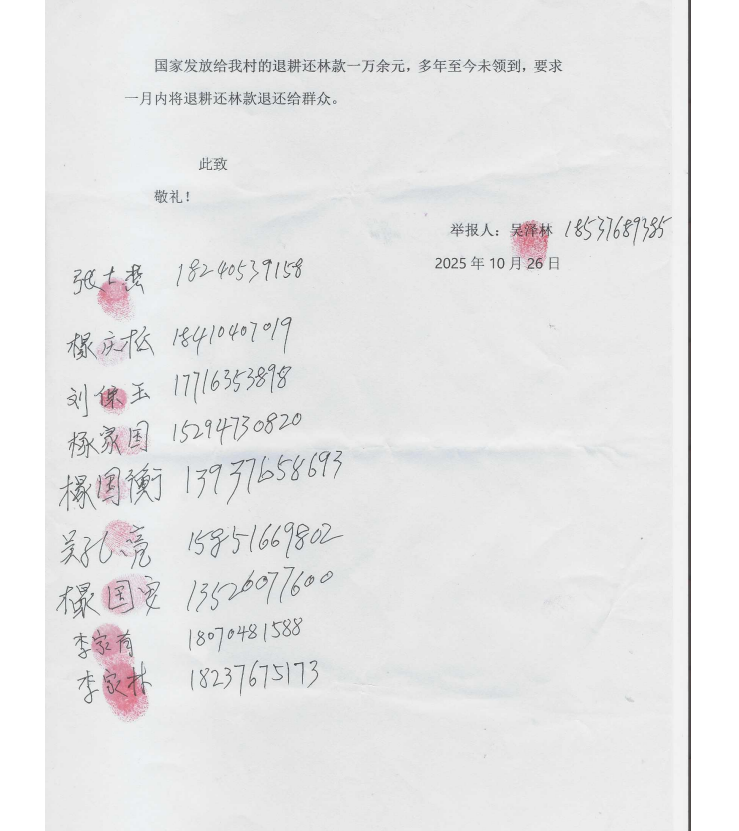 国家发放给我村的退耕还林款一万余元，多年至今未领到，要求
一月内将退耕还林款退还给群众。
此致
敬礼！
举报人：吴泽林 18537689385
2025年10月26日
张 18240539158
庆松 18410407019
刘保玉 17716353898
家国 15294730820
国衡 13937658693
吴孔亮 15851669802
国安 13526077600
李家育 18070481588
李家林 18237675173